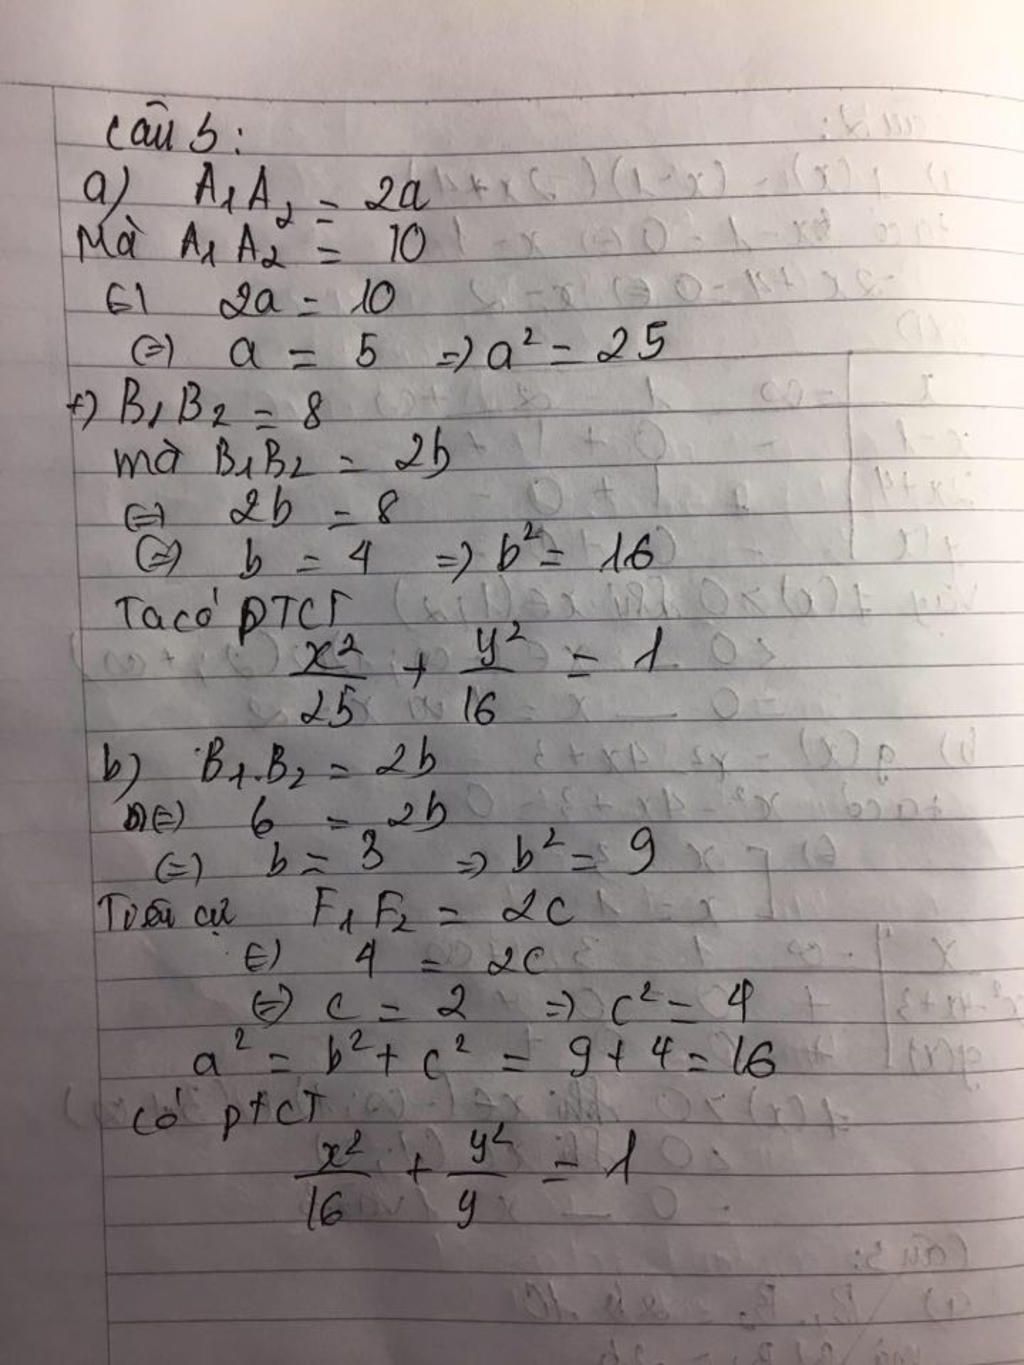 Câu 5:
a) A₁A₂ = 2a
Mà A₁A₂ = 10
⇔ 2a = 10
⇔ a = 5 ⇒ a² = 25
+) B₁B₂ = 8
mà B₁B₂ = 2b
⇔ 2b = 8
⇔ b = 4 ⇒ b² = 16
Ta có PTCT
x²/25 + y²/16 = 1
b) B₁B₂ = 2b
⇔ 6 = 2b
⇔ b = 3 ⇒ b² = 9
Tiêu cự F₁F₂ = 2c
⇔ 4 = 2c
⇔ c = 2 ⇒ c² = 4
a² = b² + c² = 9 + 4 = 16
Có PTCT
x²/16 + y²/9 = 1